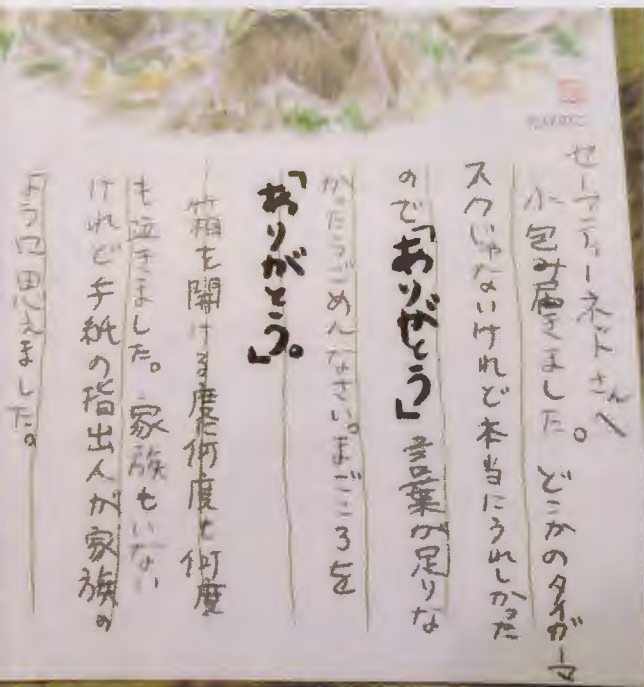 セーフティーネットさんへ
小包み届きました。どこかのタイガーマ
スクじゃないけれど本当にうれしかった
ので「ありがとう」言葉が足りな
かったらごめんなさい。まごころを
「ありがとう。」
箱を開ける度に何度も何度
も泣きました。家族もいない
けれど手紙の差出人が家族の
ように思えました。